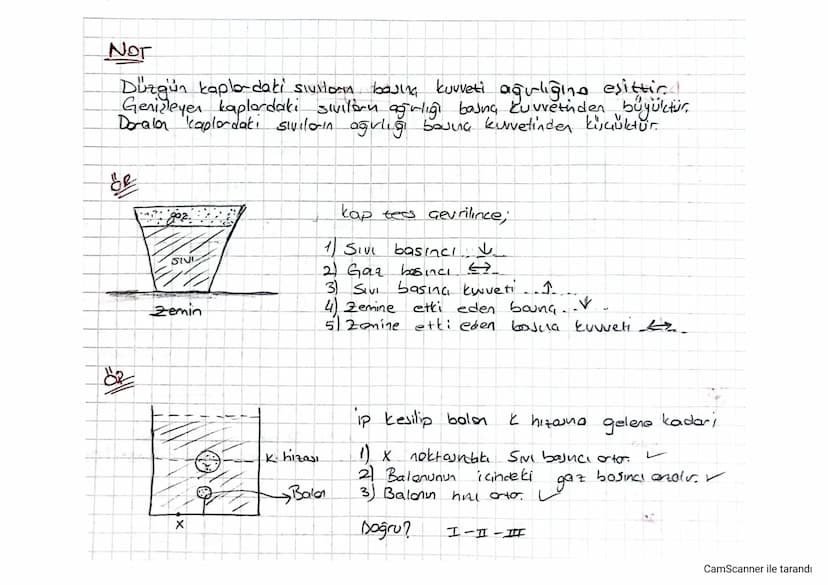 NOT
Düzgün kaplardaki sıvıların basınç kuvveti ağırlığına eşittir.
Genişleyen kaplardaki sıvıların ağırlığı basınç kuvvetinden büyüktür.
Daralan kaplardaki sıvıların ağırlığı basınç kuvvetinden küçüktür.
ÖR
gaz
SIVI
Zemin
Kap ters çevrilince;
1) Sıvı basıncı ..↓..
2) Gaz basıncı ..↔..
3) Sıvı basınç kuvveti ..↑...
4) Zemine etki eden basınç ..↓..
5) Zemine etki eden basınç kuvveti ..↔..
ÖR
K hizası
Balon
X
İp kesilip balon K hizasına gelene kadar;
1) X noktasındaki Sıvı basıncı artar. ✓
2) Balonunun içindeki gaz basıncı azalır. ✓
3) Balonın hızı artar. ✓
Doğru? I - II - III
CamScanner ile tarandı